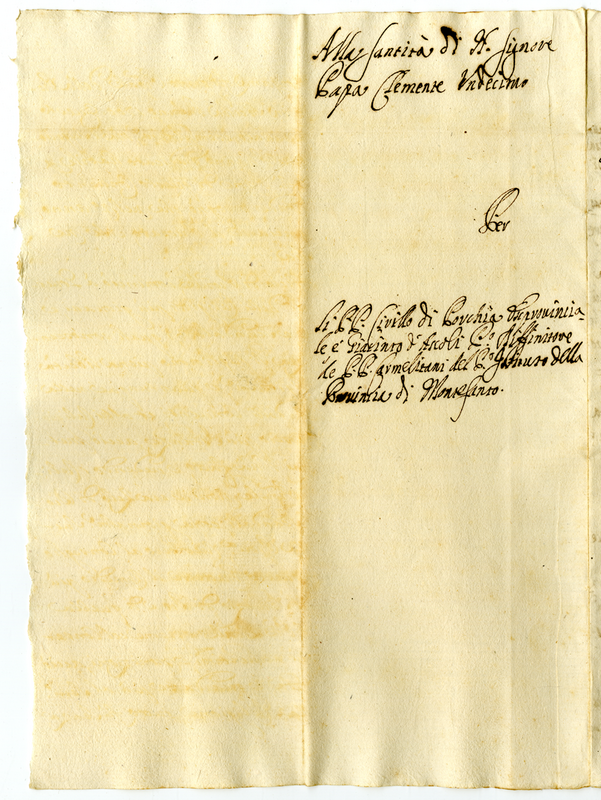 Alla Santità di N. Signore
Papa Clemente Undecimo
Per
Li PP. Cirillo di Porchia Exprovincia-
le e Giacinto d'Ascoli P.º Diffinitore
de PP. Carmelitani del P.º Istituto della
Provincia di Montesanto.